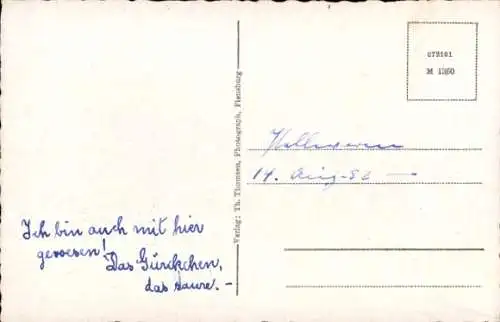 Ich bin auch mit hier
gewesen!
Das Gürckchen,
das saure. -
Verlag: Th. Thomsen, Photograph, Flensburg
M 1260
14. Aug. 52 —